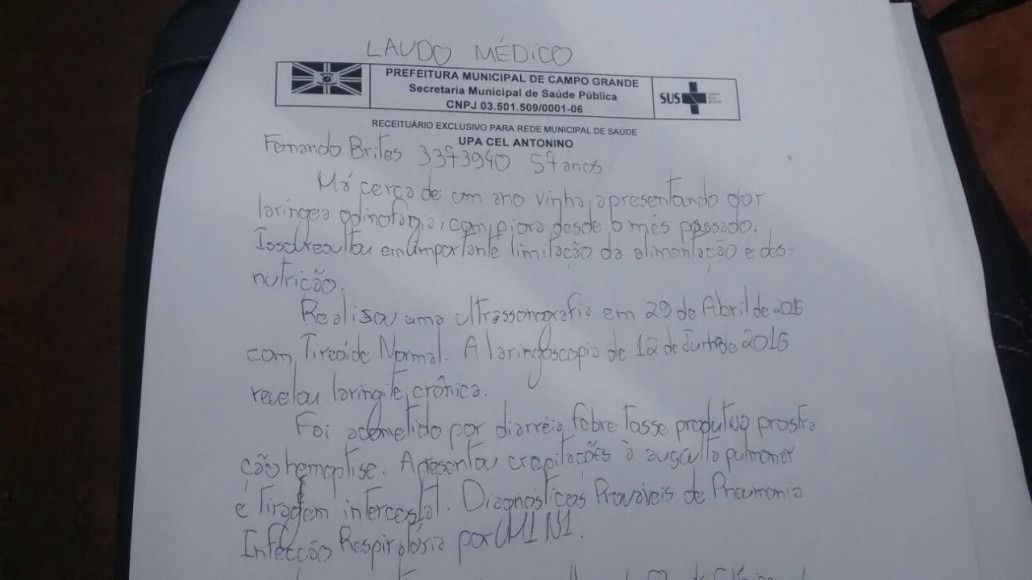 LAUDO MÉDICO
PREFEITURA MUNICIPAL DE CAMPO GRANDE
Secretaria Municipal de Saúde Pública
CNPJ 03.501.509/0001-06
SUS
RECEITUÁRIO EXCLUSIVO PARA REDE MUNICIPAL DE SAÚDE
UPA CEL ANTONINO
Fernando Brites 3373940 57 anos
Há cerca de um ano vinha apresentando dor
laringea odinofagia, com piora desde o mês passado.
Isso resultou em importante limitação da alimentação e des-
nutrição.
Realisou uma ultrassonografia em 29 de Abril de 2016
com Tireóide Normal. A laringoscopia de 12 de Junho de 2016
revelou laringite crônica.
Foi acometido por diarreia febre tosse produtiva prostra
ção hemoptise. Apresentou crepitações à ausculta pulmonar
e tiragem intercostal. Diagnosticos Prováveis de Pneumonia
Infecção Respiratória por H1N1.